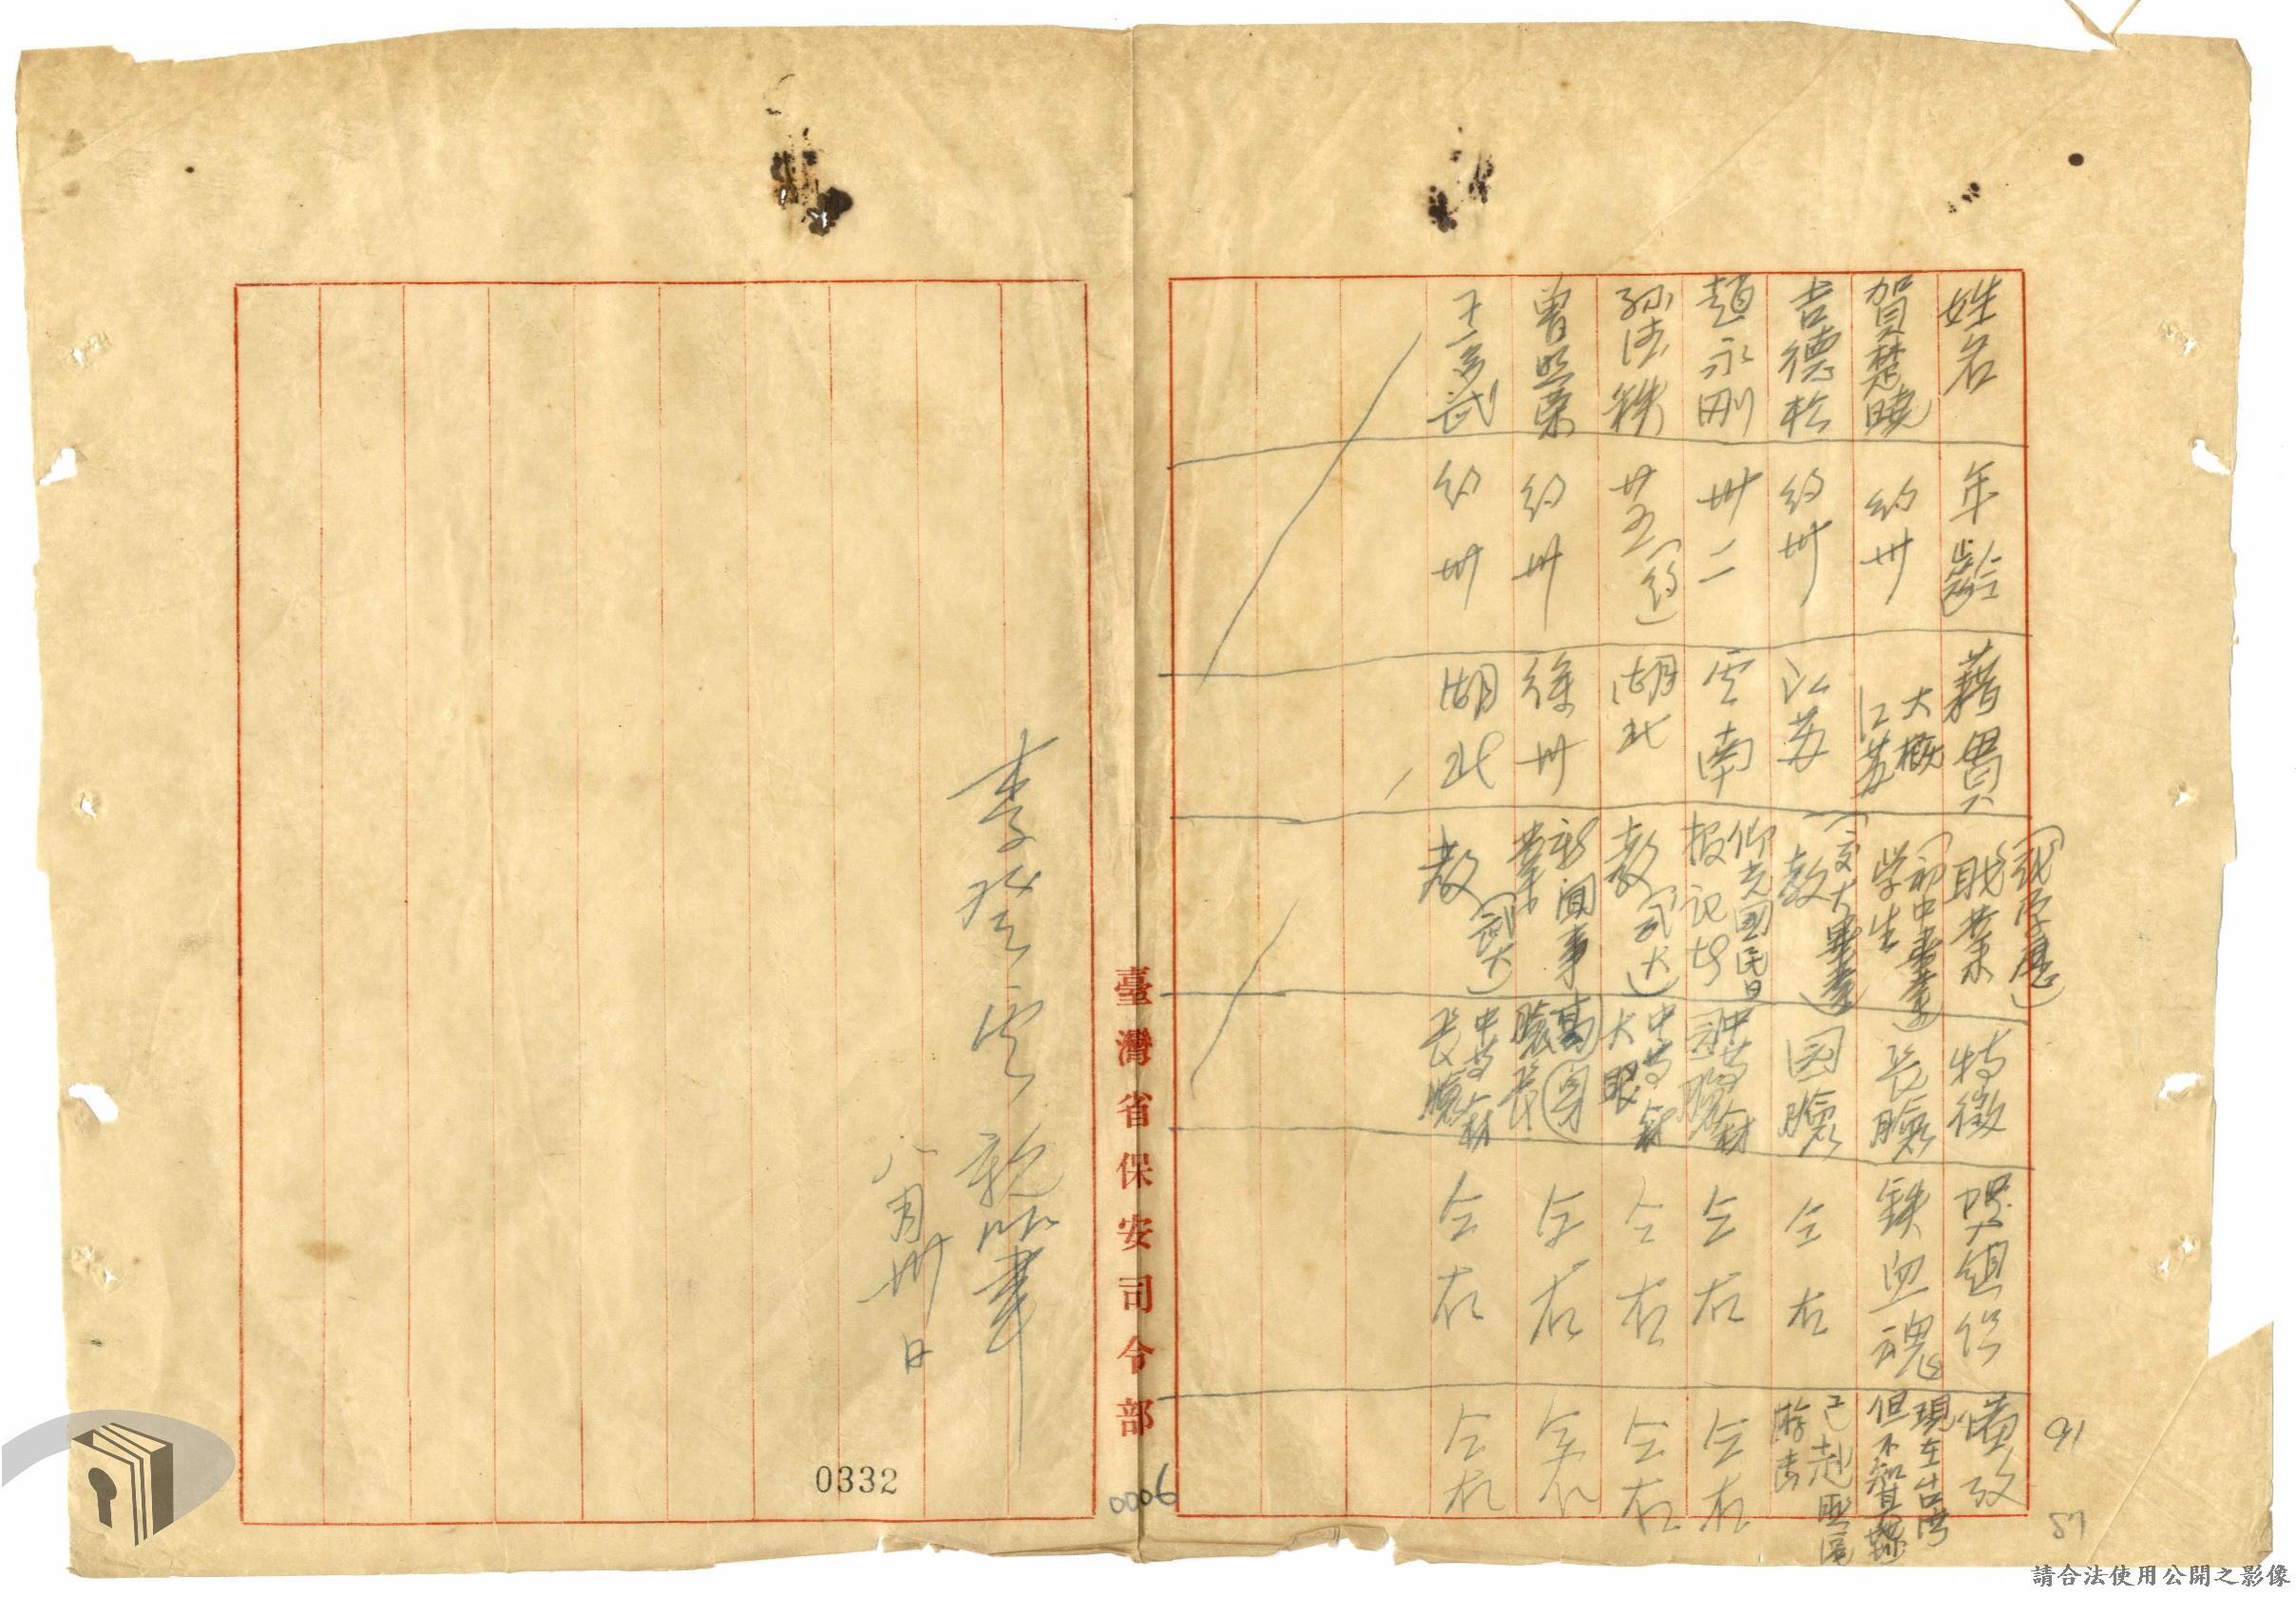 姓名 年齡 藉貫 職業 (或学歷) 特徵 與組織 備攷
賀楚曉 約卅 大概江苏 学生 (初中畢業) 長臉 鉄血魂 現在台灣但不知其
吉德松 約卅 江苏 教 (交大畢業) 园臉 仝右 已赴匪區游击
趙永刚 卅二 云南 仰光國民日报记者 中等 仝右 仝右
孫法鉄 廿五(約) 湖北 教 (武大) 中等 大眼 仝右 仝右
曾照榮 約卅 徐州 新聞事業 高 臉長 仝右 仝右
王彥武 約卅 湖北 教 (武大) 中等 長臉 仝右 仝右
臺灣省保安司令部
李 云 親筆
八月卅日
0332
0006
91
87
請合法使用公開之影像